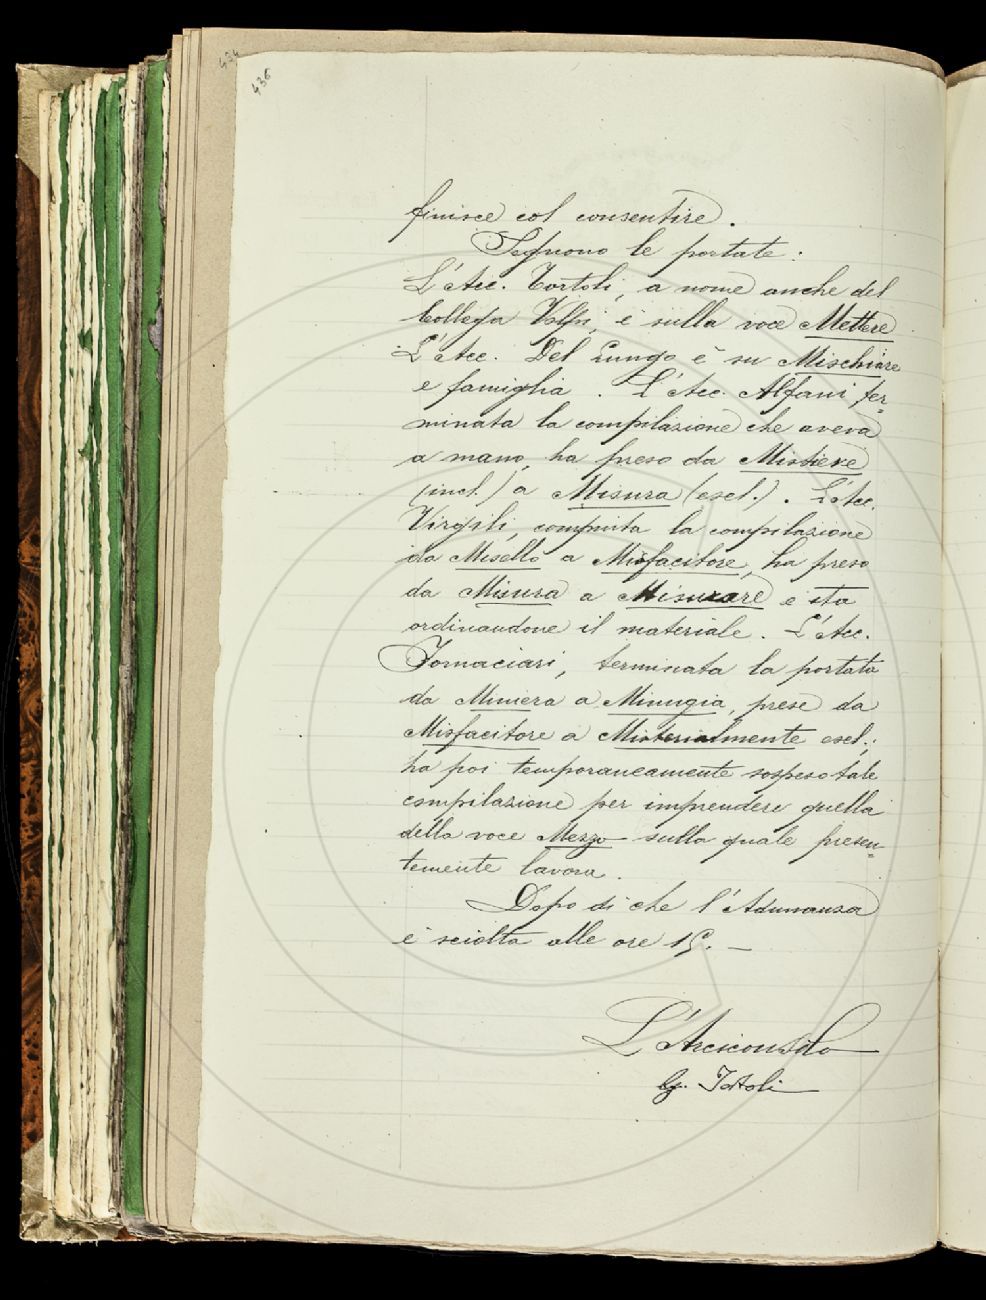 434
436
finisce col consentire.
Seguono le portate:
L'Acc. Tortoli, a nome anche del
Collega Volpi, è sulla voce Mettere
L'Acc. Del Lungo è su Mischiare
e famiglia. L'Acc. Alfani, ter=
minata la compilazione che aveva
a mano, ha preso da
(incl.) a Misura (escl.). L'Acc.
Virgili, compiuta la compilazione
da Misello a Misfacitore, ha preso
da Misura a Misurare e sta
ordinandone il materiale. L'Acc.
Fornaciari, terminata la portata
da Miniera a Minugia, prese da
Misfacitore a Misterialmente escl.;
ha poi temporaneamente sospeso tale
compilazione per imprendere quella
della voce Mezzo sulla quale presen=
temente lavora.
Dopo di che l'Adunanza
è sciolta alle ore 15. —
L'Arciconsolo
G. Tortoli